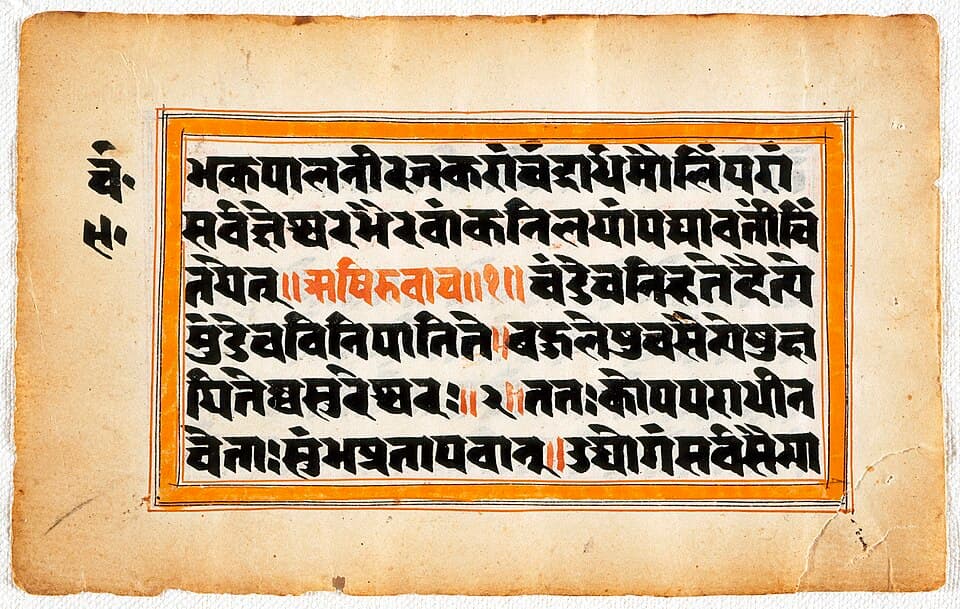 चं.
भकपालनीरजकरांचंद्रार्धमौलिंपरां
सर्वज्ञेश्वरभैरवांकनिलयांपद्मावतींचिं
तयेत्॥ऋषिरुवाच॥१॥चंडेचनिहतेदैत्ये
मुंडेचविनिपातिते॥बहुलेषुचसैन्येषुक्ष
यितेष्वसुरेश्वरः॥२॥ततःकोपपराधीन
चेताःसुंभप्रतापवान्॥उद्योगंसर्वसैन्या